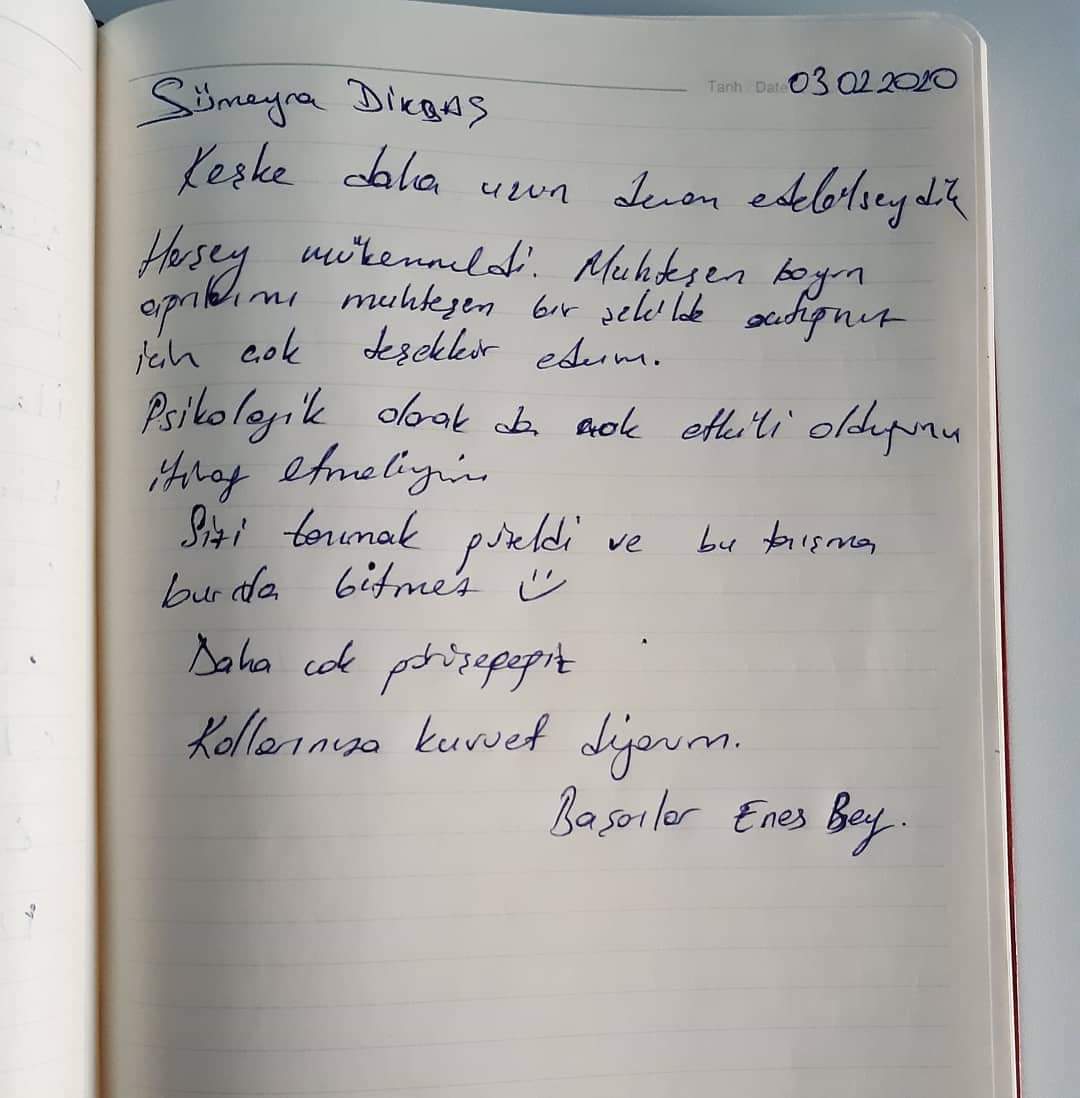 Tarih / Date 03 02 2020
Sümeyra DİKBAŞ
Keşke daha uzun devam edebilseydik
Herşey mükemmeldi. Muhteşem boyun
ağrılarımı muhteşem bir şekilde
için çok teşekkür ederim.
Psikolojik olarak da çok etkili olduğunu
itiraf etmeliyim
Sizi tanımak güzeldi ve bu tanışma
burda bitmez
Daha çok görüşeceğiz
Kollarınıza kuvvet diyorum.
Başarılar Enes Bey.